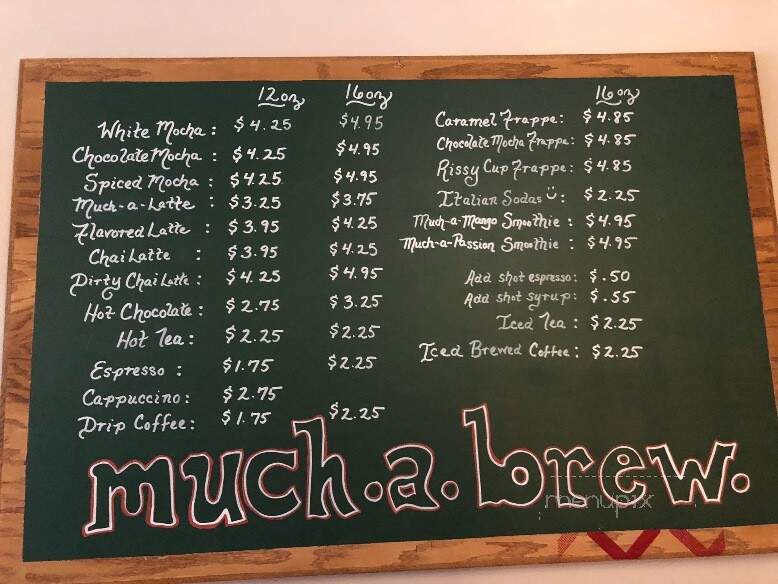 12oz 16oz
White Mocha : $4.25 $4.95
Chocolate Mocha : $4.25 $4.95
Spiced Mocha : $4.25 $4.95
Much-a-Latte : $3.25 $3.75
Flavored Latte : $3.95 $4.25
Chai Latte : $3.95 $4.25
Dirty Chai Latte : $4.25 $4.95
Hot Chocolate : $2.75 $3.25
Hot Tea : $2.25 $2.25
Espresso : $1.75 $2.25
Cappuccino : $2.75
Drip Coffee : $1.75 $2.25
16oz
Caramel Frappe: $4.85
Chocolate Mocha Frappe: $4.85
Rissy Cup Frappe: $4.85
Italian Sodas : $2.25
Much-a-Mango Smoothie : $4.95
Much-a-Passion Smoothie : $4.95
Add shot espresso: $.50
Add shot syrup: $.55
Iced Tea : $2.25
Iced Brewed Coffee : $2.25
much.a.brew.
menupix